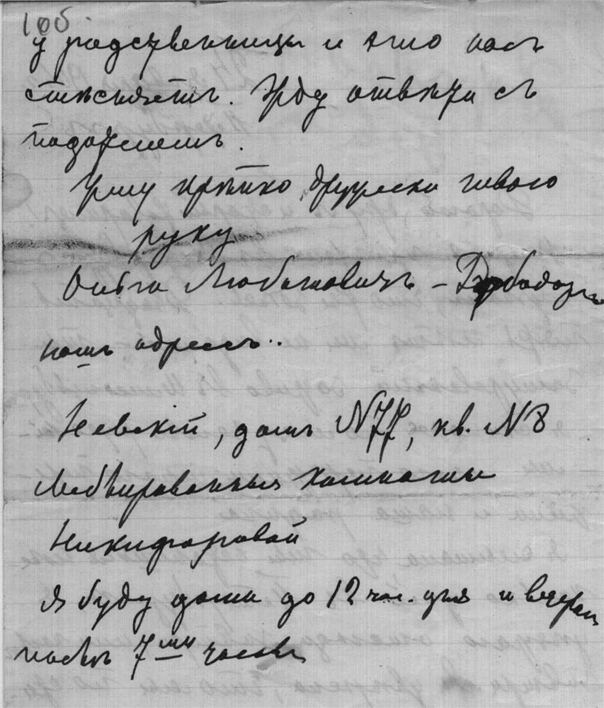 106
у родственницы и это насъ
стѣсняетъ. Жду отвѣта съ
подателемъ.
Жму крѣпко, дружески
руку
Ольга Любатовичъ –
нашъ адресъ..
Невскій, домъ №77, кв. №8
Меблированныя комнаты
Никифоровой
Я буду дома до 12 час. дня и вечером
послѣ 7ми часовъ